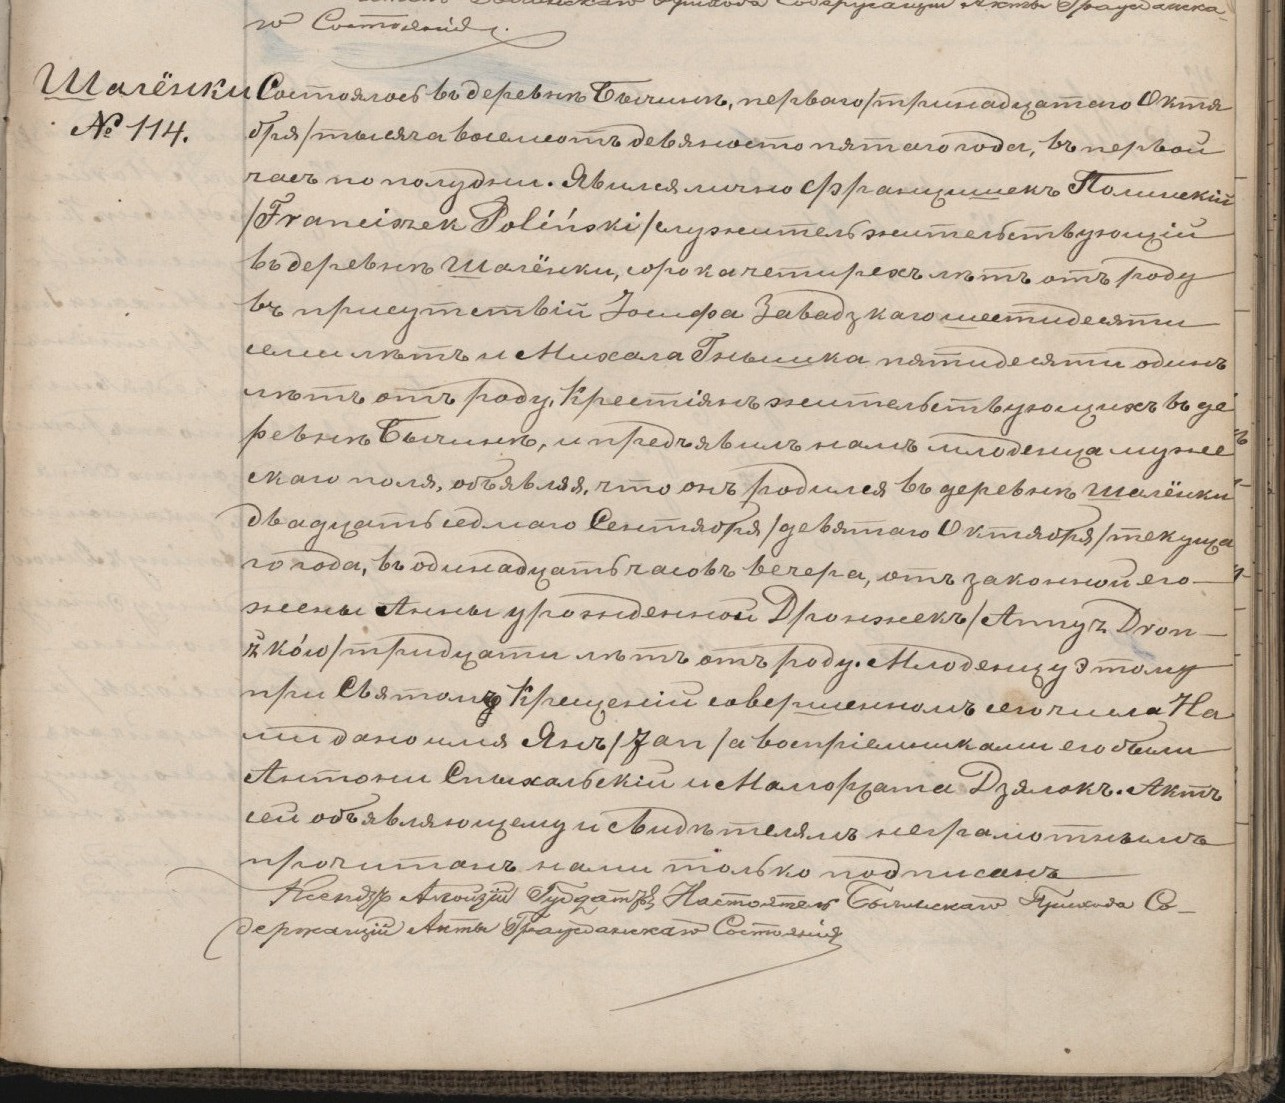 Бычинскаго Прихода Содержащій Акты Гражданска-
го Состоянія.
Шалёнки
№ 114.
Состоялось въ деревнѣ Бычинѣ, перваго/тринадцатаго Октя
бря/тысяча восемсотъ девяносто пятаго года, въ первой
часъ по полудни. Явился лично Францишекъ Полинскій
/Franciszek Poliński/служитель жительствующій
въ деревнѣ Шалёнки, сорока четирехъ лѣтъ отъ роду
въ присутствій Іосифа Завадзкаго шестидесяти
семи лѣтъ и Михала Гнышка пятидесяти одинъ
лѣтъ отъ роду, Крестіянъ жительствующихъ въ де
ревнѣ Бычинѣ, и предъявилъ намъ младенца муже
скаго поля, объявляя, что онъ родился въ деревнѣ Шалёнки
двадцать седмаго Сентября/девятаго Октября/текуща
го года, въ одинадцать часовъ вечера, отъ законной его
жены Анны урожденной Дронжекъ/Anny z Dron-
żków/тридцати лѣтъ отъ роду. Младенцу этому
при Святомъ Крещеній совершенномъ сего числа На
ми дано имя Янъ/Jan/а воспріемниками его были
Антони Спыхальскій и Малгоржата Дзялакъ. Актъ
сей объявляющему и свидѣтелямъ неграмотнымъ
прочитанъ нами только подписанъ
Ксендзъ Алоизій Настоятель Бычинскаго Прихода Со-
держащій Акты Гражданскаго Состоянія